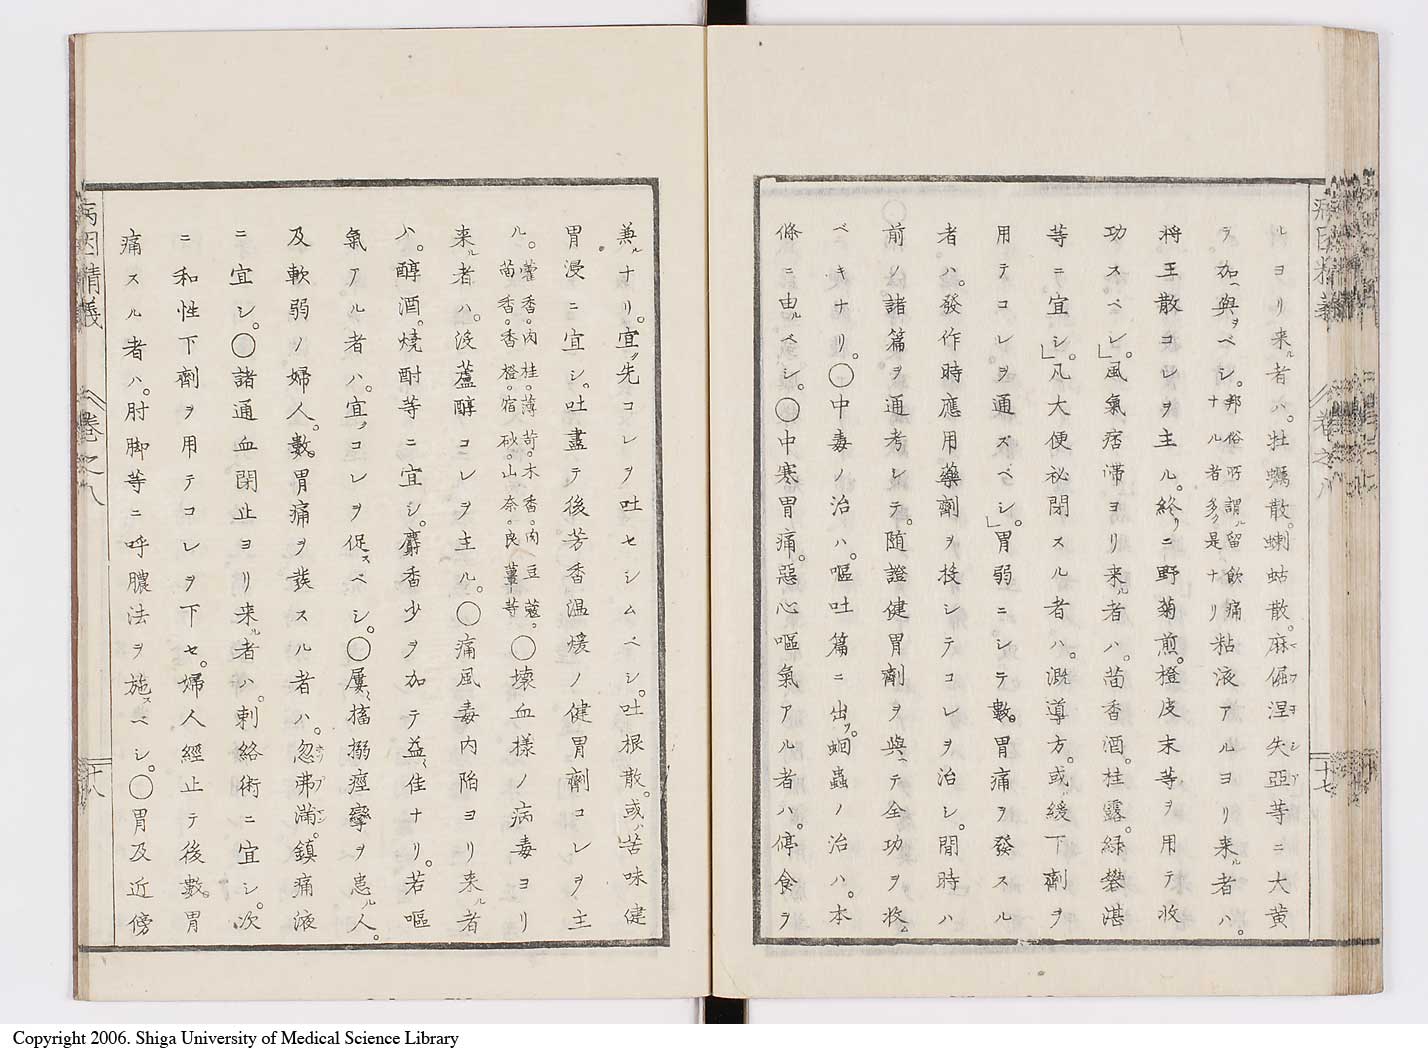 ルヨリ来ル者ハ。牡蠣散。蝲蛄散。麻倔涅失亞等ニ大黄
ヲ加ヘ與ヲベシ。邦俗所謂ル留飲痛ナル者多ク是ナリ粘液アルヨリ来ル者ハ。
将王散コレヲ主ル。終リニ野菊煎。橙皮末等ヲ用テ收
功スベシ」。風氣痞滞ヨリ来ル者ハ。茴香酒。桂露。緑礬湛
等ニ宜シ」。凡大便祕閉スル者ハ。溉導方。或緩下劑ヲ
用テコレヲ通スベシ」。胃弱ニシテ數。胃痛ヲ發スル
者ハ。發作時應用藥劑ヲ投シテコレヲ治シ。間時ハ
前ノ諸篇ヲ通考シテ。随證健胃劑ヲ與ヘテ全功ヲ收ム
ベキナリ。〇中毒ノ治ハ。嘔吐篇ニ出ヅ。蛔蟲ノ治ハ。本
條ニ由ルベシ。〇中寒胃痛。惡心嘔氣アル者ハ。停食ヲ
病因精義 卷之八 十七
兼ルナリ。宜ク先コレヲ吐セシムベシ。吐根散。或ハ苦味健
胃浸ニ宜シ。吐盡テ後芳香温煖ノ健胃劑コレヲ主
ル。藿香。肉桂。薄苛。木香。肉豆蔻。茴香。香橙。宿砂。山奈。良薑等〇壊血様ノ病毒ヨリ
来ル者ハ。没蘆醇コレヲ主ル。〇痛風毒内陥ヨリ来ル者
ハ。醇酒。燒酎等ニ宜シ。麝香少ヲ加テ益〻佳ナリ。若嘔
氣アル者ハ。宜クコレヲ促スベシ。〇屢〻搐搦痙攣ヲ患ル人。
及軟弱ノ婦人。數。胃痛ヲ發スル者ハ。忽弗滿。鎮痛液
ニ宜シ。〇諸通血閉止ヨリ来ル者ハ。刺絡術ニ宜シ。次
ニ和性下劑ヲ用テコレヲ下セ。婦人經止テ後數。胃
痛スル者ハ。肘脚等ニ呼膿法ヲ施スベシ。〇胃及近傍
病因精義 卷之八 十八
Copyright 2006. Shiga University of Medical Science Library